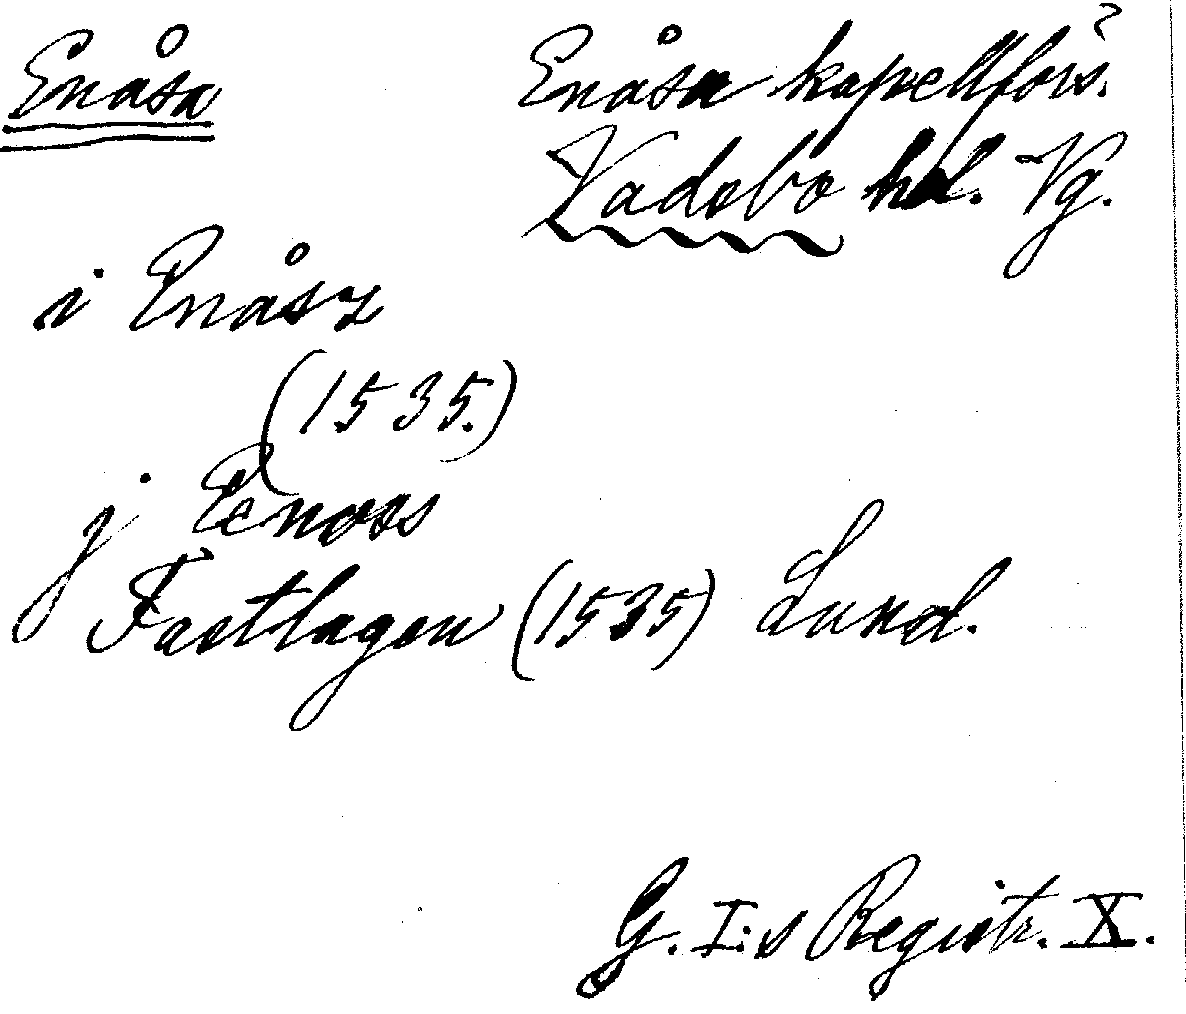 Enåsa
Enåsa kapellförs.?
Vadsbo hd. Vg.
i Enåsz
(1535.)
j Eenoss
Fastlagen (1535) Lund.
G. I:s Registr. X.